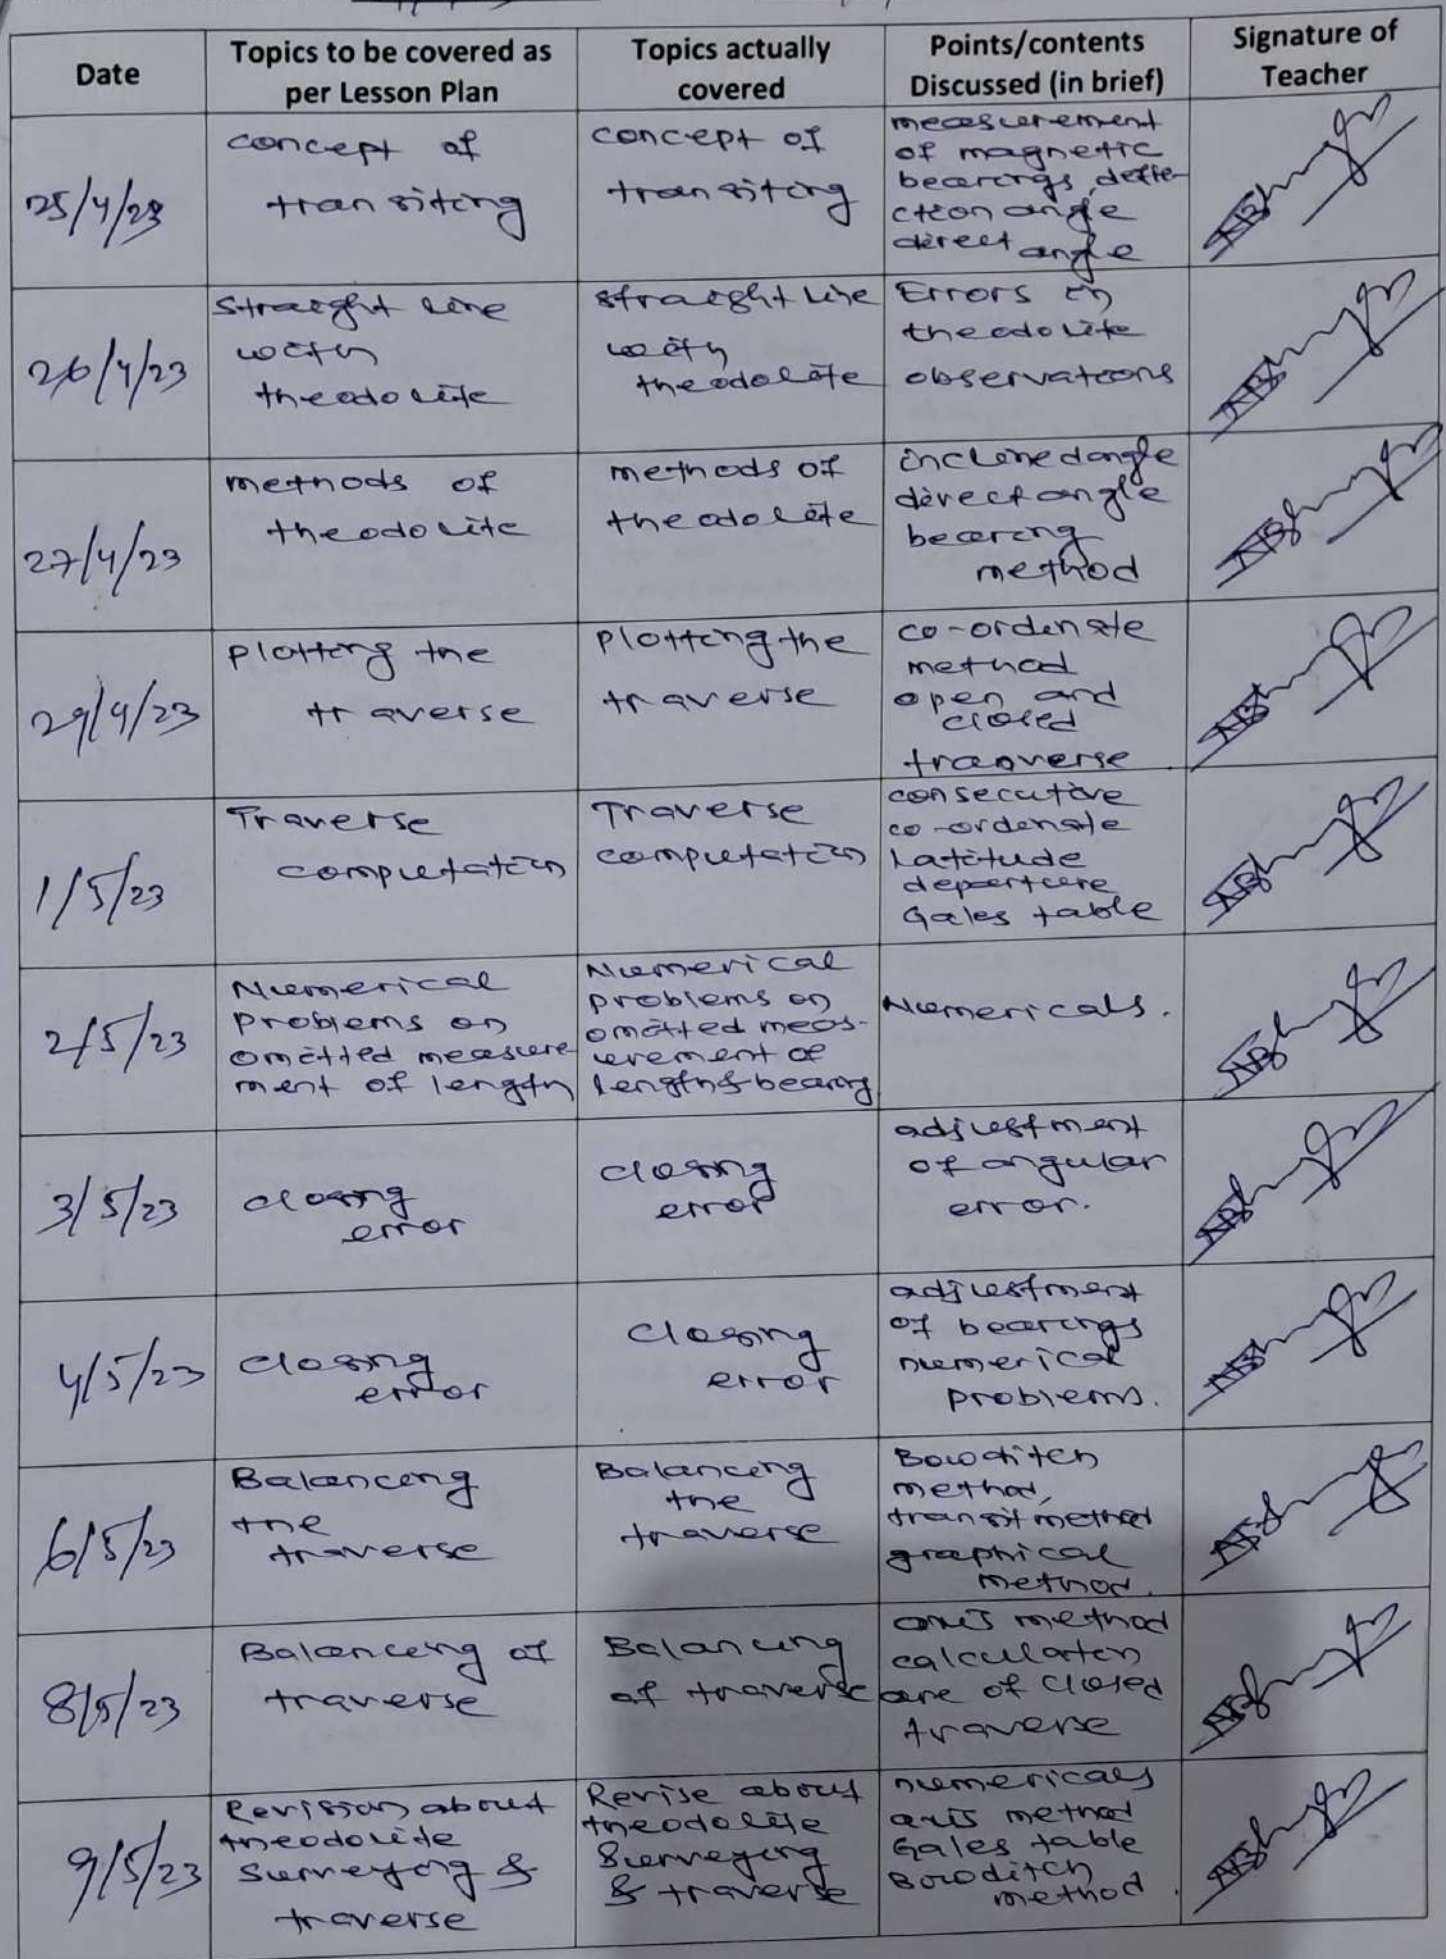 Date
Topics to be covered as
per Lesson Plan
Topics actually
covered
Points/contents
Discussed (in brief)
Signature of
Teacher
25/4/23
concept of
transiting
concept of
transiting
measurement
of magnetic
bearings, defle-
ction angle
direct angle
26/4/23
Straight line
with
theodolite
straight line
with
theodolite
Errors in
theodolite
observations
27/4/23
methods of
theodolite
methods of
theodolite
inclined angle
direct angle
bearing
method
29/4/23
plotting the
traverse
plotting the
traverse
co-ordinate
method
open and
closed
traqverse
1/5/23
Traverse
computation
Traverse
computation
consecutive
co-ordinate
Latitude
departure
Gales table
2/5/23
Numerical
problems on
omitted measure
ment of length
Numerical
problems on
omitted meas-
urement of
length & bearing
Numericals.
3/5/23
closing
error
closing
error
adjustment
of angular
error.
4/5/23
closing
error
closing
error
adjustment
of bearings
numerical
problems.
6/5/23
Balancing
the
traverse
Balancing
the
traverse
Bowditch
method,
transit method
graphical
method.
8/5/23
Balancing of
traverse
Balancing
of traverse
axis method
calculation
are of closed
traverse
9/5/23
Revision about
theodolite
surveying &
traverse
Revise about
theodolite
Surveying
& traverse
numericals
axis method
Gales table
Bowditch
method.